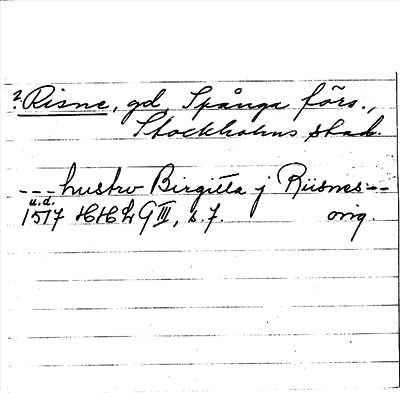 ? Risne, gd, Spånga förs.,
Stockholms stad.
--- hustrv Birgitta j Riisnes---
u.d.
1517 HH G III, s. 7. orig.